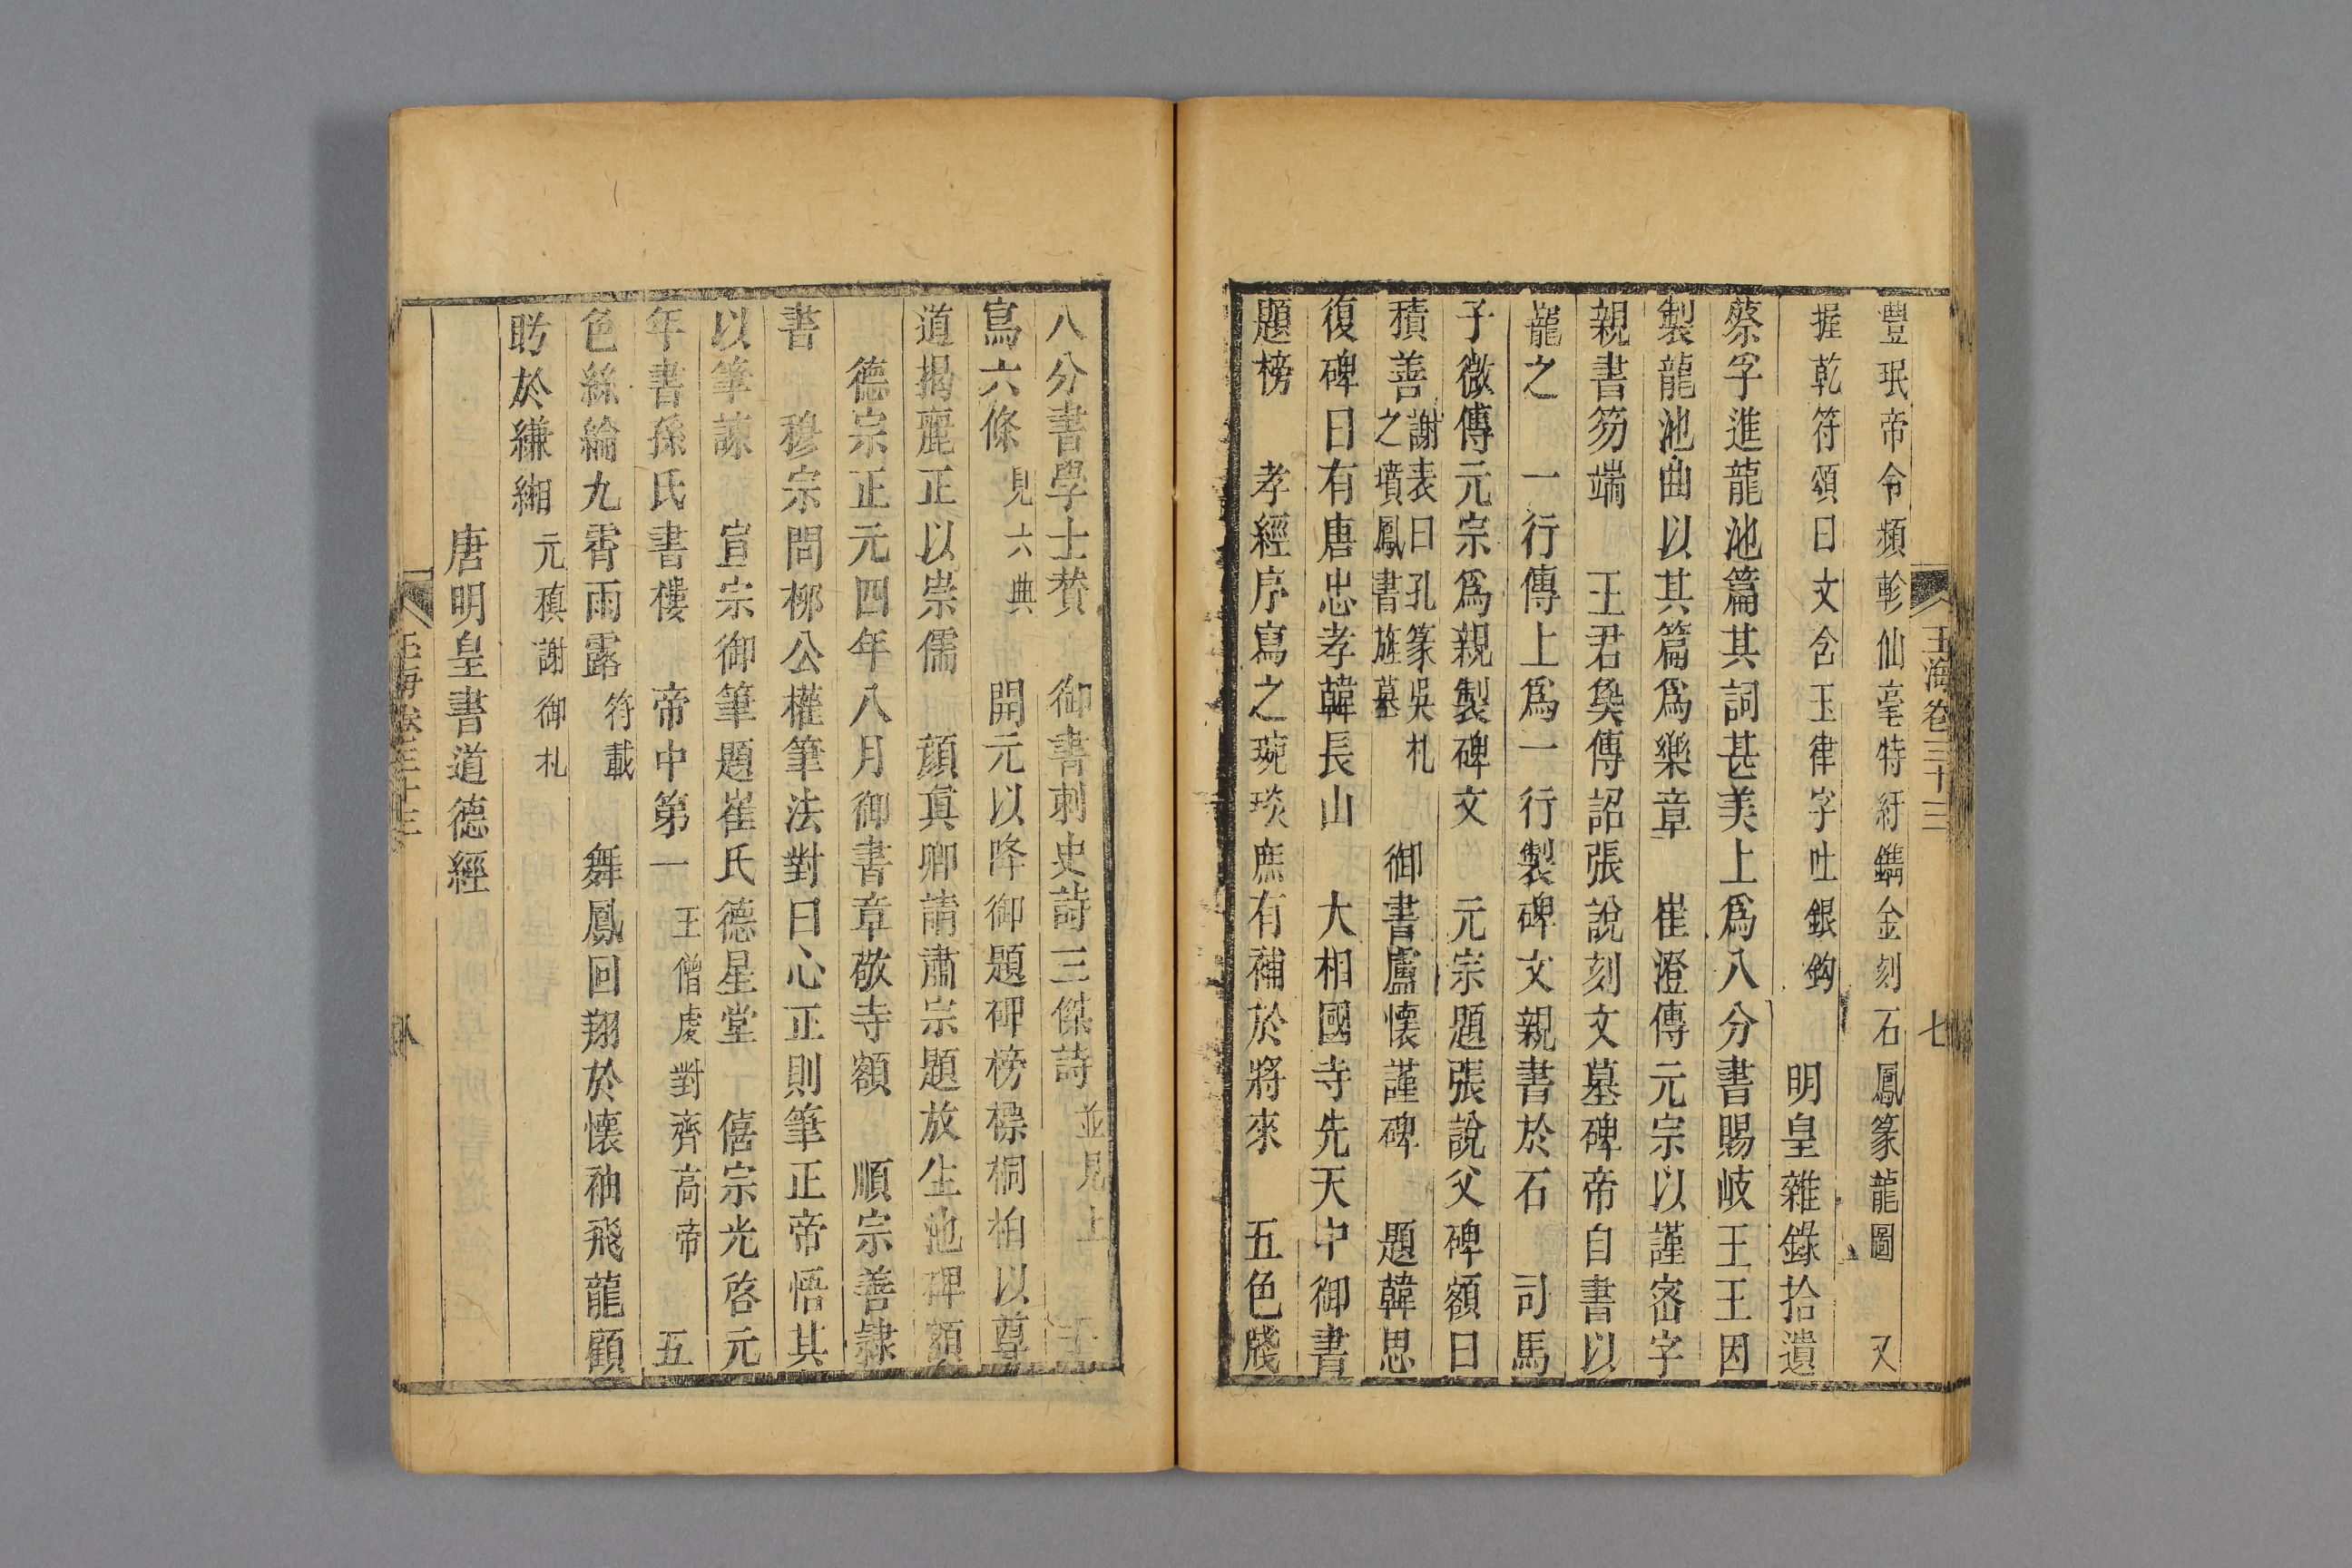 玉海卷三十三 七
豐珉帝令頻軫仙毫特紆鐫金刻石鳳篆龍圖 又
握乾符頌曰文含玉律字吐銀鉤 明皇雜錄拾遺
蔡孚進龍池篇其詞甚美上爲八分書賜岐王王因
製龍池曲以其篇爲樂章 崔澄傳元宗以謹宻字
親書笏端 王君㚟傳詔張說刻文墓碑帝自書以
龍之 一行傳上爲一行製碑文親書於石 司馬
子微傳元宗爲親製碑文 元宗題張說父碑額曰
積善謝表曰孔篆吳札之墳鳳書旌墓 御書盧懷謹碑 題韓思
復碑曰有唐忠孝韓長山 大相國寺先天中御書
題榜 孝經序寫之琬琰庶有補於將來 五色牋
八分書學士贊 御書刺史詩三傑詩並見上
寫六條見六典 開元以降御題碑榜樑桐柏以尊
道揭麗正以崇儒 顏眞卿請肅宗題放生池碑額
德宗正元四年八月御書章敬寺額 順宗善隷
書 穆宗問桺公權筆法對曰心正則筆正帝悟其
以筆諫 宣宗御筆題崔氏德星堂 僖宗光啓元
年書孫氏書樓 帝中第一王僧虔對齊高帝 五
色絲綸九霄雨露符載 舞鳳回翔於懷袖飛龍顧
眄於縑緗元稹謝御札
唐明皇書道德經
玉海卷三十三 八